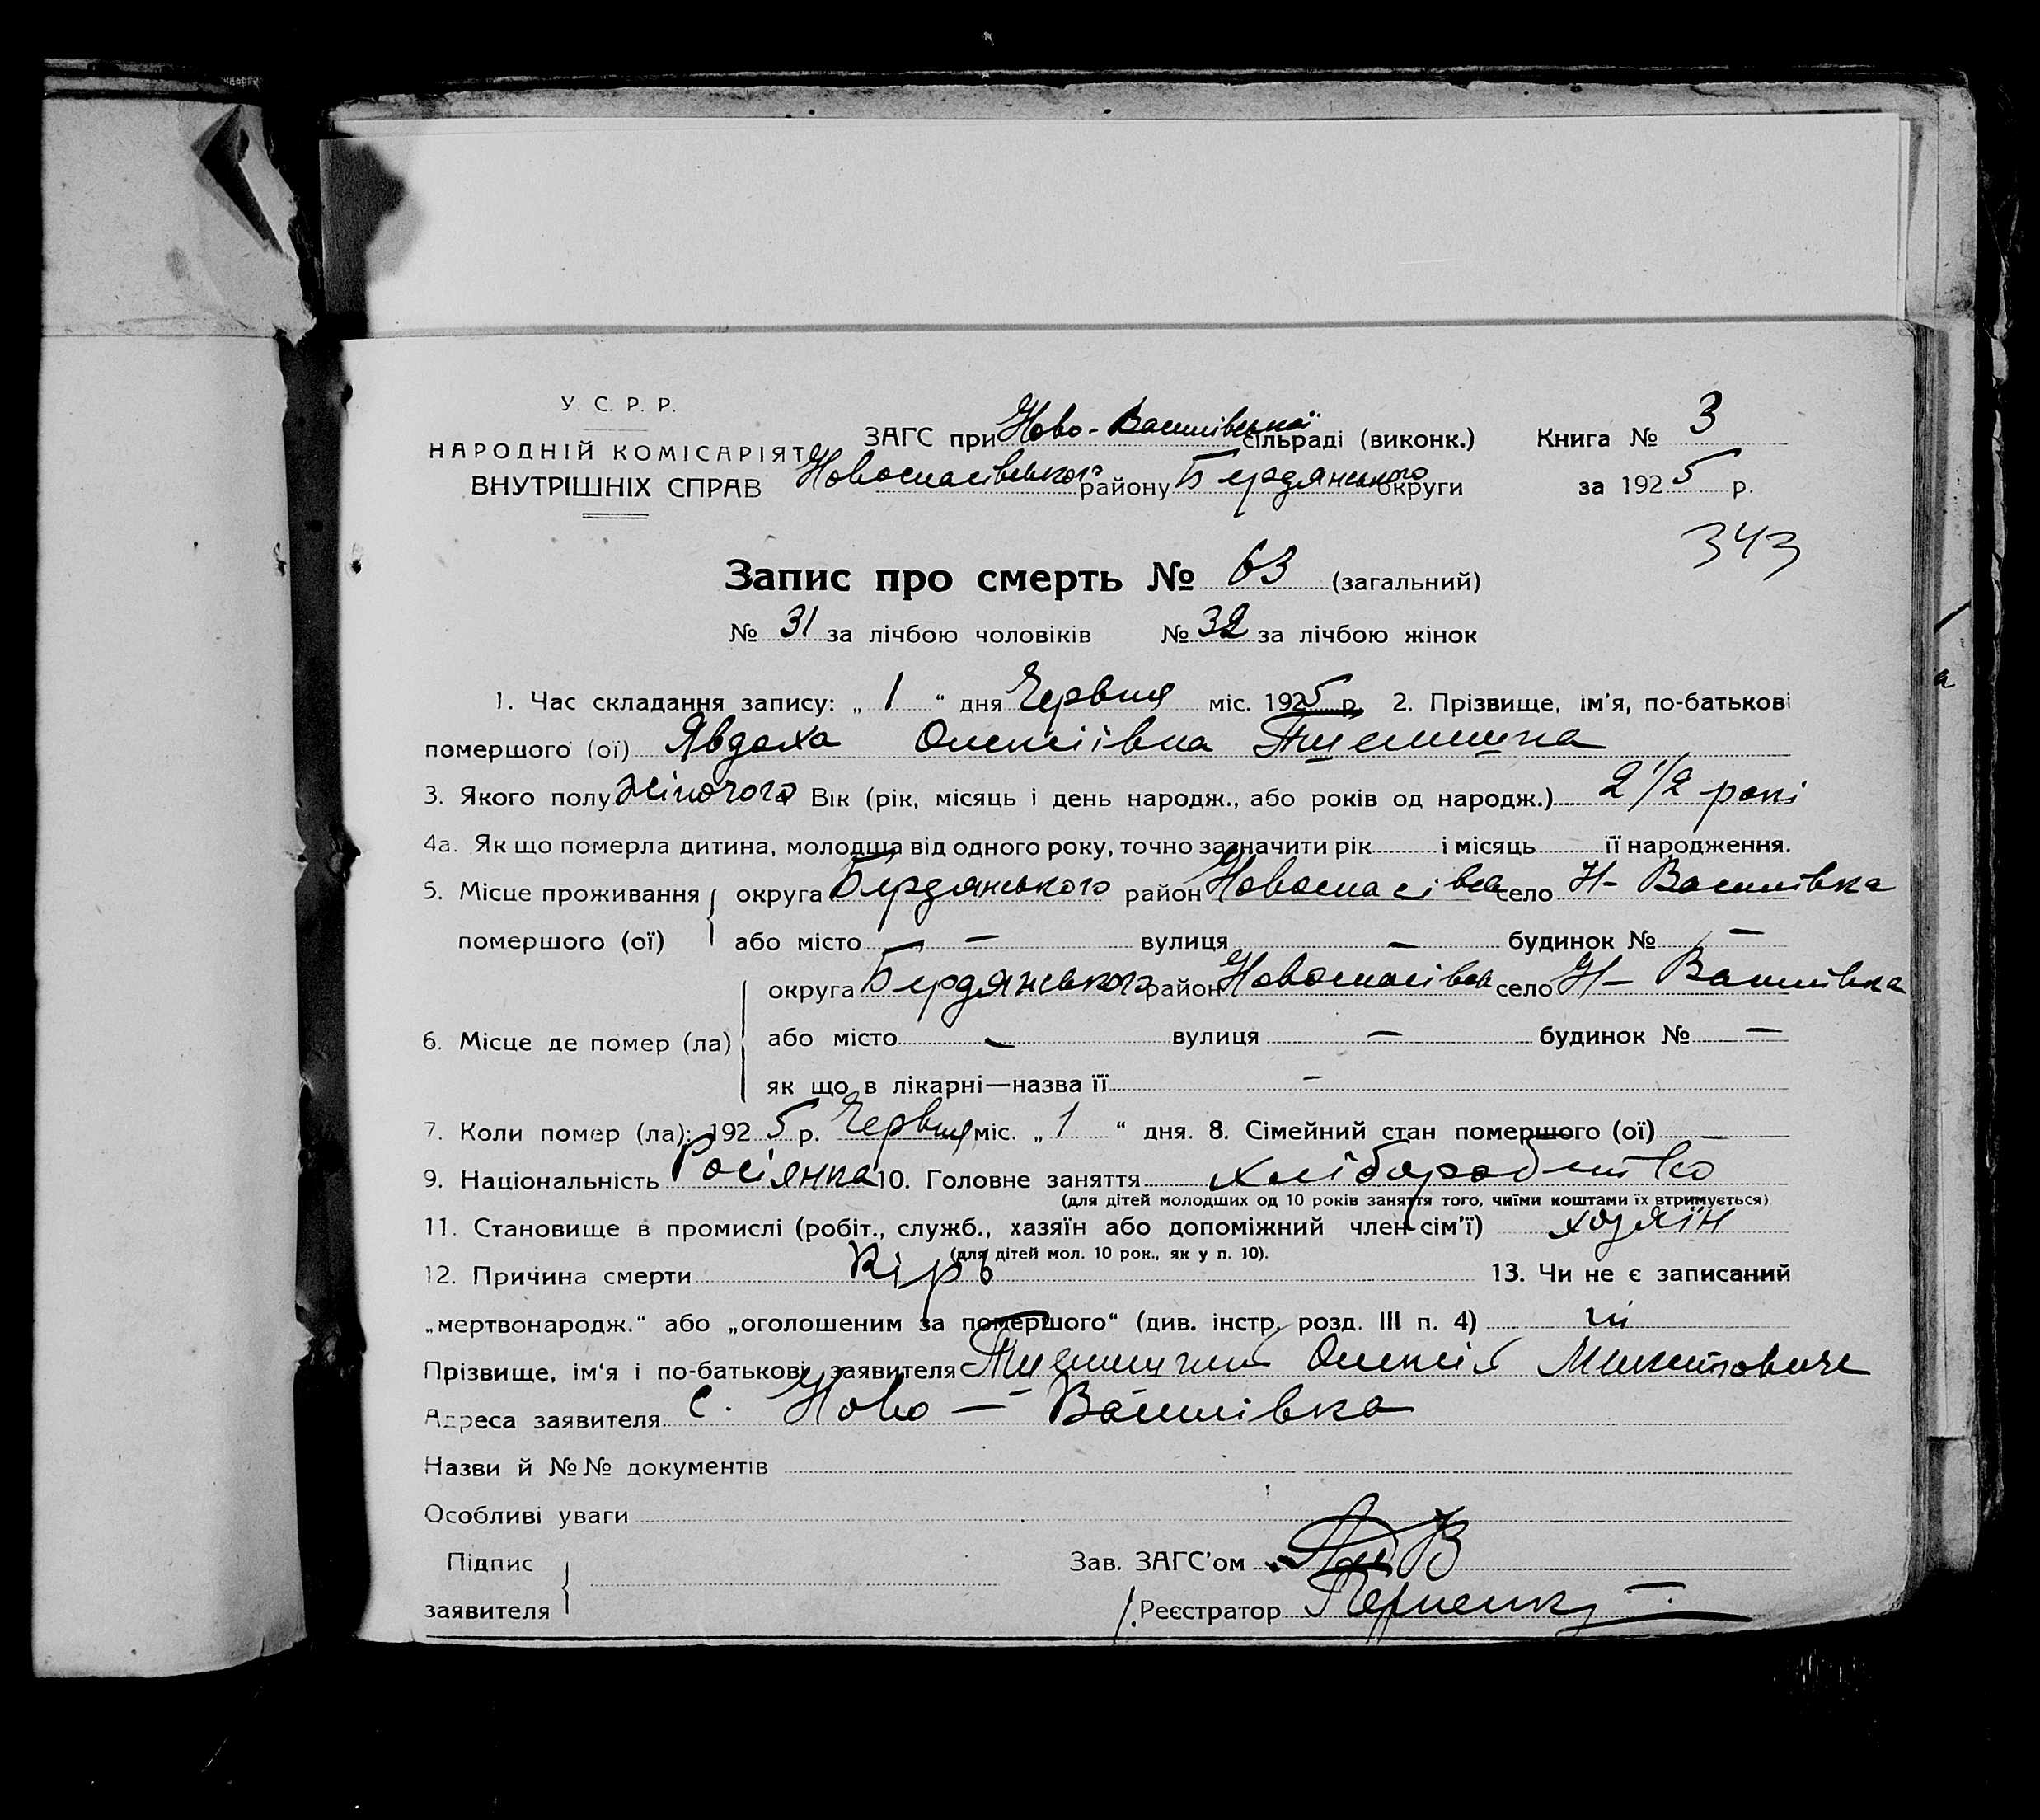 У. С. Р. Р.
НАРОДНІЙ КОМІСАРІЯТ
ВНУТРІШНІХ СПРАВ
ЗАГС при Ново-Василівської сільраді (виконк.)
Новоспасівського району Бердянського округи
Книга № 3
за 1925 р.
343
Запис про смерть № 63 (загальний)
№ 31 за лічбою чоловіків № 32 за лічбою жінок
1. Час складання запису: „ 1 “ дня Червня міс. 1925 р. 2. Прізвище, ім'я, по-батькові
помершого (ої) Явдоха Олексіївна
3. Якого полу жіночого Вік (рік, місяць і день народж., або років од народж.) 2 1/2 рокі
4а. Як що померла дитина, молодща від одного року, точно зазначити рік і місяць її народження.
5. Місце проживання округа Бердянського район Новоспасівсь село Н- Василівка
помершого (ої) або місто — вулиця — будинок № —
6. Місце де помер (ла) округа Бердянського район Новоспасівсь село Н- Василівка
або місто — вулиця — будинок № —
як що в лікарні—назва її -
7. Коли помер (ла): 1925 р. Червня міс. „ 1 “ дня. 8. Сімейний стан помершого (ої) —
9. Національність Росіянка 10. Головне заняття хліборобство
(для дітей молодших од 10 років заняття того, чиїми коштами їх втримується)
11. Становище в промислі (робіт., служб., хазяїн або допоміжний член сім'ї) хозяїн
(для дітей мол. 10 рок., як у п. 10).
12. Причина смерти Кірь 13. Чи не є записаний
„мертвонародж.“ або „оголошеним за помершого“ (див. інстр. розд. III п. 4) ні
Прізвище, ім'я і по-батькові заявителя Олексій Микитовиче
Адреса заявителя с. Ново — Василівка
Назви й №№ документів
Особливі уваги
Підпис
заявителя
Зав. ЗАГС'ом
Реєстратор